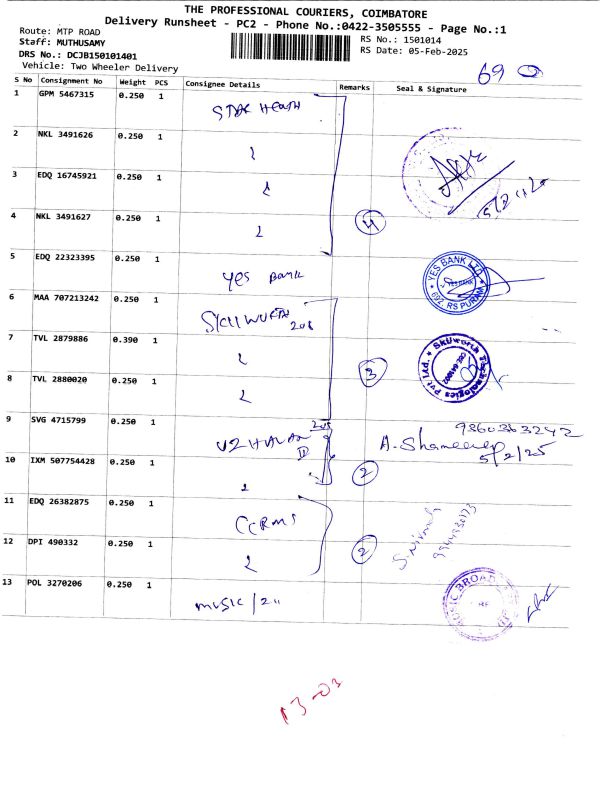 THE PROFESSIONAL COURIERS, COIMBATORE
Delivery Runsheet - PC2 - Phone No.:0422-3505555 - Page No.:1
Route: MTP ROAD
RS No.: 1501014
Staff: MUTHUSAMY
RS Date: 05-Feb-2025
DRS No.: DCJB150101401
Vehicle: Two Wheeler Delivery
69
S No Consignment No Weight PCS Consignee Details Remarks Seal & Signature
1 GPM 5467315 0.250 1 STAR HEATH
2 NKL 3491626 0.250 1
3 EDQ 16745921 0.250 1
4 NKL 3491627 0.250 1 4
5 EDQ 22323395 0.250 1 YES BANK
YES BANK LTD. * 692, RS PURAM *
YES BANK
6 MAA 707213242 0.250 1
7 TVL 2879886 0.390 1 3
Skilworth Technologies Pvt Ltd. *
CBE 641002
8 TVL 2880020 0.250 1
9 SVG 4715799 0.250 1
9360363242
A. Shameem
5/2/25
10 IXM 507754428 0.250 1 2
11 EDQ 26382875 0.250 1 CCRMS
12 DPI 490332 0.250 1 2
13 POL 3270206 0.250 1 music /
MUSIC BROAD
13-03